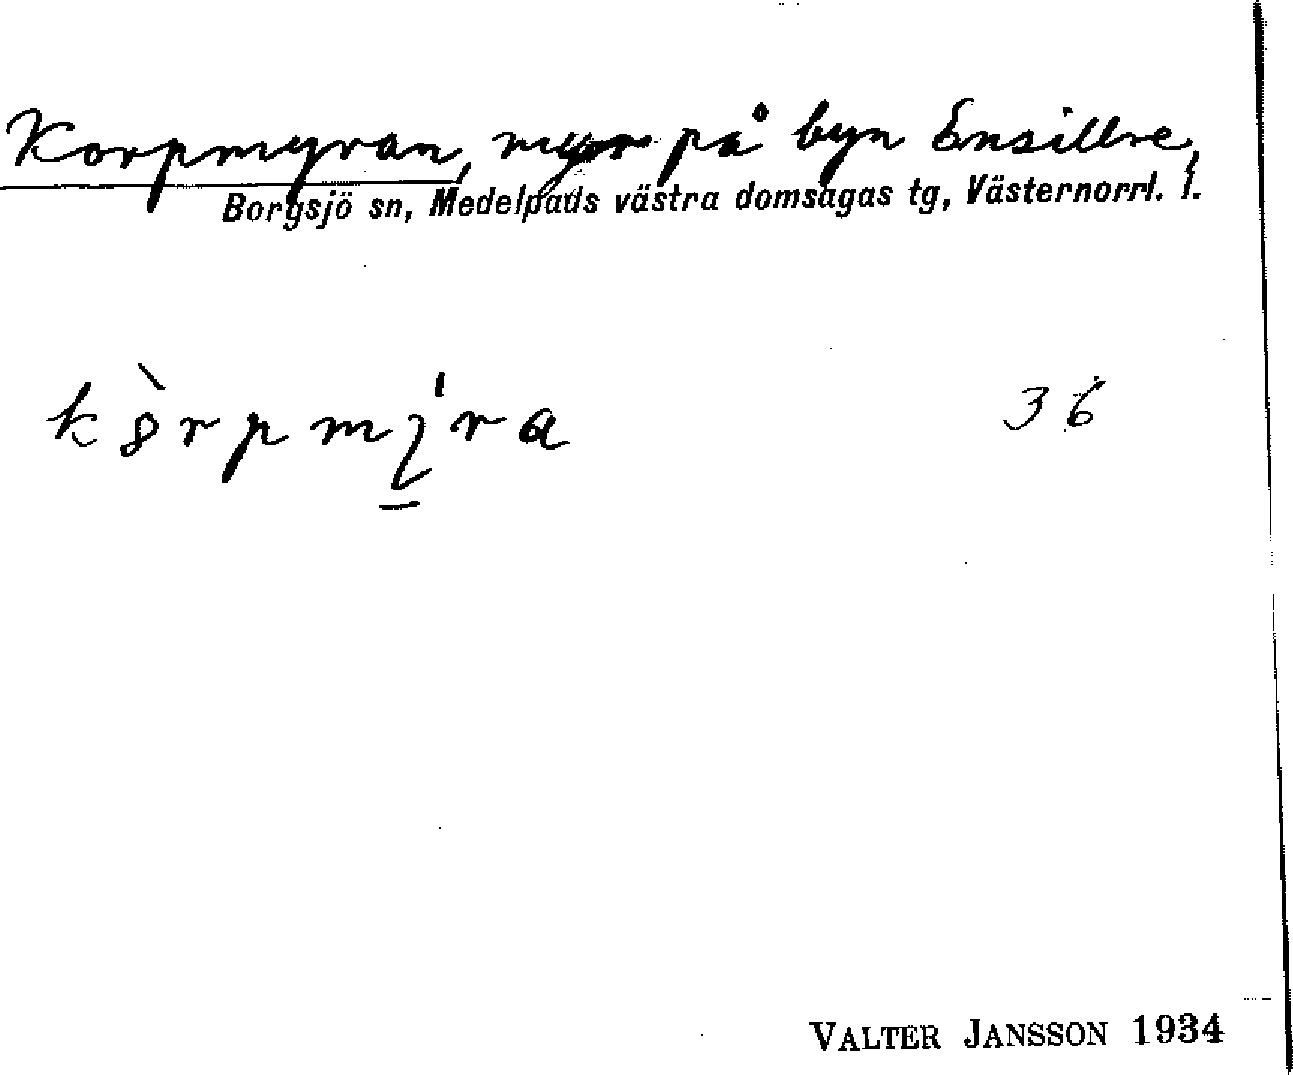 Korpmyran, myr på byn Ensillre,
Borgsjö sn, Medelpads västra domsagas tg, Västernorrl. l.
kòrpmy̱ra 36
VALTER JANSSON 1934